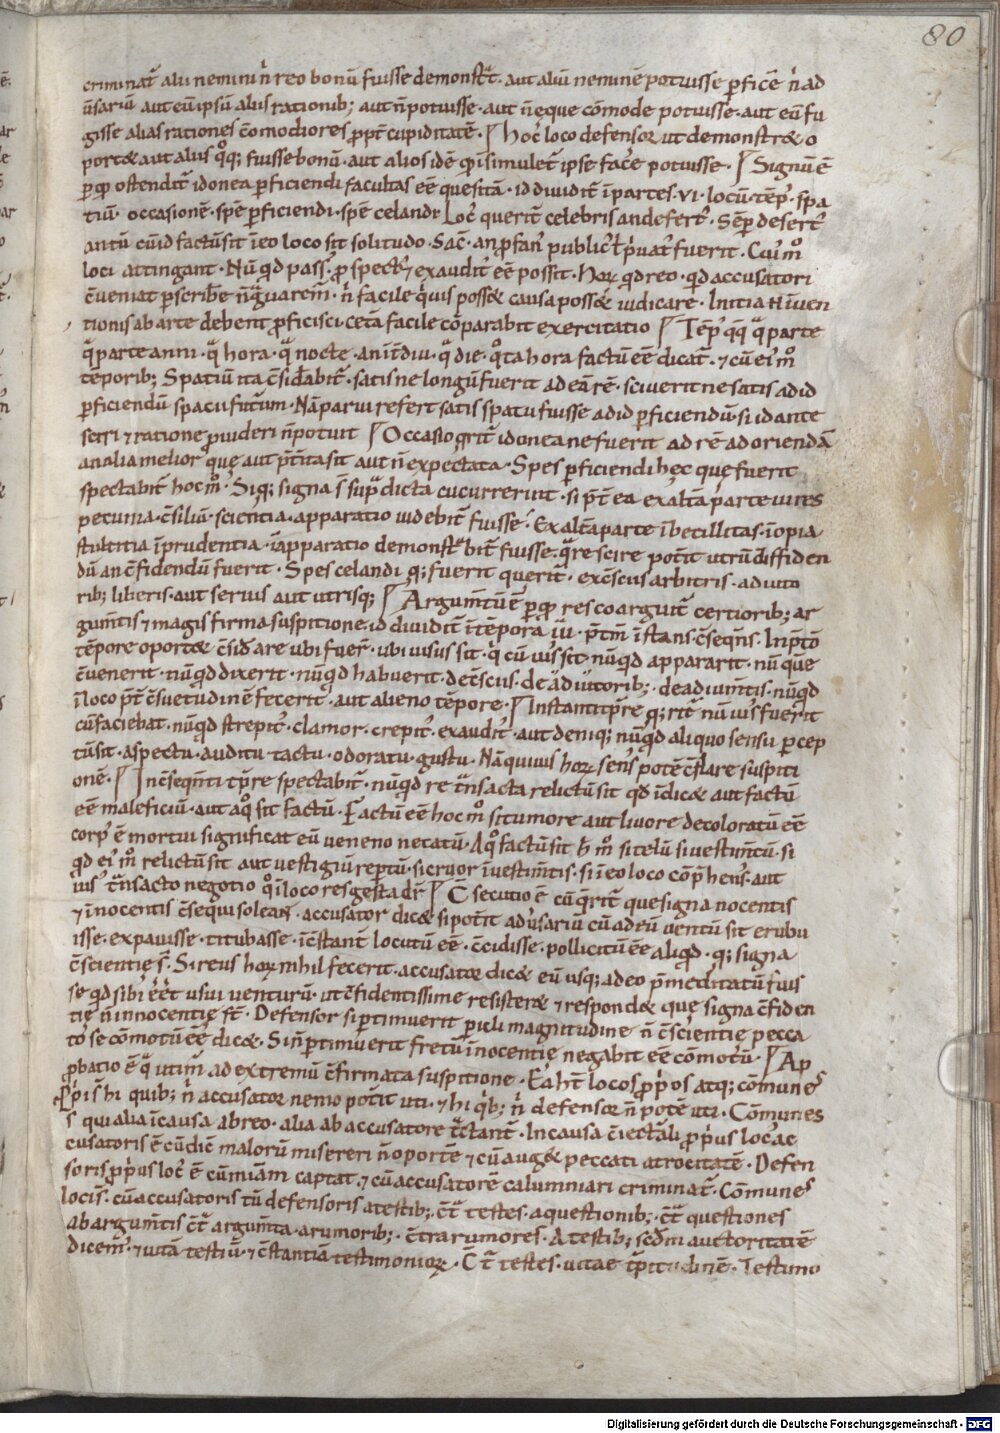 80
criminat᷑ alii nemini n̄ reo bonū fuisse demonst᷑t. aut aliū neminē potuisse ꝑficē n̄ ad
ūsariū aut eū ipsū aliis rationib; aut n̄ potuisse. aut n̄ eque cōmode potuisse. aut eū fu
gisse alias rationes cōmodiores ꝓpt᷑ cupiditatē. hoc loco defensor ut demonstr& o
port& aut aliis qͦq; fuisse bonū. aut alios idē qͥ insimulet᷑ ipse facē potuisse. Signū ē
ꝑ qͦ ostendit᷑ idonea ꝑficiendi facultas eē quesita. id dividit᷑ ī partes. vi. locū. tēp᷒. spa
tiū. occasionē. spē ꝑficiendi. spē celandi. Loc᷒ querit᷑ celebris an desert᷒. Sēꝑ desert᷒
an tū cū id factū sit ī eo loco sit solitudo. Sac᷑. an ꝓfan᷒ public᷒ ł p̄uat᷒ fuerit. Cui᷒mͦ
loci attingant. Nū qd pass᷒. ꝓspect᷒ ⁊ exaudit᷒ eē possit. Hoꝝ qd reo. qd accusatori
c̄veniat ꝑscribē n̄ gͣuarem᷑. n̄ facile qͥvis poss& causa posita iudicare. Initia n̄ īven
tionis ab arte debent ꝓficisci. cet̄a facile cōparabit exercitatio Tēp᷒ qͥq qͣ parte
qͣ parte anni. qͣ hora. qͣ nocte. an īt̄diu. qͣ die. qͦta hora factū eē dicat᷑. ⁊ cū ei᷒mͦ
tēporib; Spatiū ita c̄siđabit᷑. satis ne longū fuerit ad eā rē. scierit ne satis ad id
ꝑficiendū spacii futurum. Nā parvi refert satis spatii fuisse ad id ꝑficiendū. si id ante
sciri ⁊ ratione ꝓvideri n̄ potuit Occasio qͥrit᷑ idonea ne fuerit ad rē adoriendā
an alia melior que aut p̄t̄ita sit aut n̄ expectata. Spes ꝑficiendi hec que fuerit
spectabit᷑ hoc mͦ. Siq; signa s̄ supͣdicta cucurrerint. si p̄t̄ ea ex alt̄a parte vires
pecunia. c̄siliū. scientia. apparatio videbit᷑ fuisse. Ex alt̄a parte ībecillitas. īopia
stultitia īprudentia. īapparatio demonstͣbit᷑ fuisse. qͣre scire pot̄it utrū diffiden
dū an c̄fidendū fuerit. Spes celandi q; fuerit querit᷑. ex c̄sciis arbitris. adiuto
rib; liberis. aut servis aut utrisq; Argum̄tū ē ꝑ qͦ res coarguit᷑ certiorib; ar
gum̄tis ⁊ magis firma suspitione. id dividit᷑ ī tēpora iii. p̄t̄itū. īstans. c̄seqn̄s. In p̄t̄ito
tēpore oport& c̄siđare ubi fuer᷑. ubi visus sit. qͥ cū vis᷒ sit. nūqd appararit. nū que
c̄venerit. nūqd dixerit. nūqd habuerit. de c̄sciis. de adiutorib;. de adium̄tis. nūqd
ī loco p̄t̄ c̄suetudinē fecerit᷑. aut alieno tēpore. Instanti tp̄re q;rit᷑ nū vis᷒ fuerit
cū faciebat. nūqd strepit᷒. clamor. crepit᷒. exaudit᷒. aut deniq; nūqd aliquo sensu ꝑcep
tū sit. aspectu. auditu. tactu. odoratu. gustu. Nā quivis hoꝝ sens᷒ potē c̄flare suspiti
onē. In c̄seqn̄ti tp̄re spectabit᷑. nūqd re tͣnsacta relictū sit qd īdic& aut factū
eē maleficiū. aut a qͦ sit factū. Factū eē hoc mͦ. si tumore aut livore decoloratū eē
corp᷒ ē mortui significat eū veneno necatū. A qͦ factū sit h̄ mͦ. si telū si vestim̄tū. si
qd ei᷒mͦ relictū sit aut vestigiū rep̄tū. si cruor ī vestim̄tis. si ī eo loco cōp̄hens᷒. aut
vis᷒ tͣnsacto negotio qͦ ī loco res gesta dr̄ C̄secutio ē cū qͥrit᷑ que signa nocentis
⁊ īnocentis c̄sequi soleant. accusator dic& si pot̄it adūsariū cū ad eū ventū sit erubu
isse. expavisse. titubasse. īc̄stant᷑ locutū eē. c̄cidisse. pollicitū eē aliqd. q; signa
c̄scientie s̄. Si reus hoꝝ nihil fecerit. accusator dic& eū usq; adeo p̄meditatū fuis
se qd sibi eēt usui venturū. ut c̄fidentissime resister& ⁊ respond& que signa c̄fiden
tie n̄ innocentie s̄t. Defensor si ꝑtimuerit ꝑicli magnitudine n̄ c̄scientie pecca
to se cōmotū eē dic&. Si n̄ ꝑtimuerit fretū īnocentie negabit eē cōmotū. Ap
ꝓbatio ē qͣ utim᷑ ad extremū c̄firmata suspitione. Ea h̄t locos ꝓp̄os atq; cōmunes
Ꝓp̄i s̄ hi quib; n̄ accusator nemo pot̄it uti. ⁊ hi qͥb; n̄ defensor n̄ potē uti. Cōmunes
s̄ qui alia ī causa ab reo. alia ab accusatore tͣctant᷑. In causa c̄iectāli ꝓp̄us loc᷒ ac
cusatoris ē cū dic᷑ malorū misereri n̄ oportē ⁊ cū aug& peccati atrocitatē. Defen
soris ꝓp̄us loc᷒ ē cū miām captat. ⁊ cū accusatorē calumniari criminat᷑. Cōmunes
loci s̄. cū accusatoris tū defensoris a testib;. c̄tͣ testes. a questionib;. c̄tͣ questiones
ab argum̄tis c̄tͣ argum̄ta. a rumorib;. c̄tra rumores. A testib; scd̄m auctoritatē
dicem᷒. ⁊ vitā testiū. ⁊ c̄stantiā testimonioꝝ. C̄tͣ testes. vitae t᷑pitudinē. Testimo
Digitalisierung gefördert durch die Deutsche Forschungsgemeinschaft - DFG